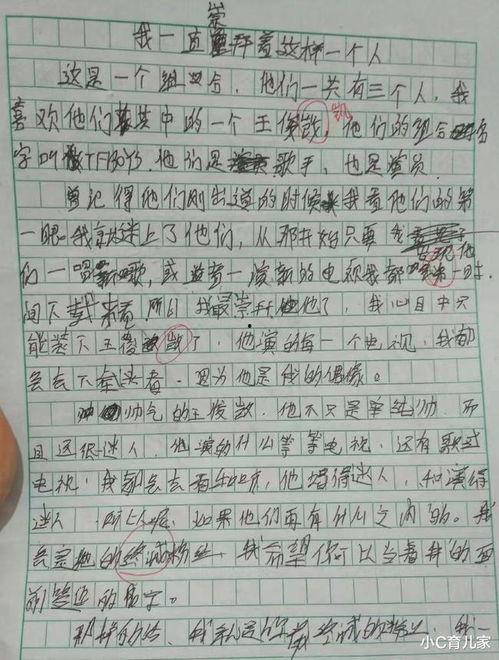 崇
我一直拜着这样一个人
这是一个组合，他们一共有三个人，我
喜欢他们其中的一个王俊凯，他们的组合
字叫TFBOYS，他们是歌手，也是演员，
记得他们刚出道的时候我看他们的第
一眼我就迷上了他们，从那开始只要
们一唱新歌，或者一演新的电视我都第一时
间下载来看 所以我最崇拜他了，我心目中只
能装下王俊 了，他演的每一个电视，我都
会去下载来看，因为他是我的偶像。
帅气的王俊 ，他不只是单纯帅，而
且还很迷人，他演的什么等等电视，还有歌或
电视，我都会去看 ，他唱得迷人，和演得
迷人 所以呢，如果他们再有什么之内的。我
会是他的 粉丝，我希望你可以当着我的面
前签 的名字。
那样的话，我就是你 的粉丝，我一
小C育儿家